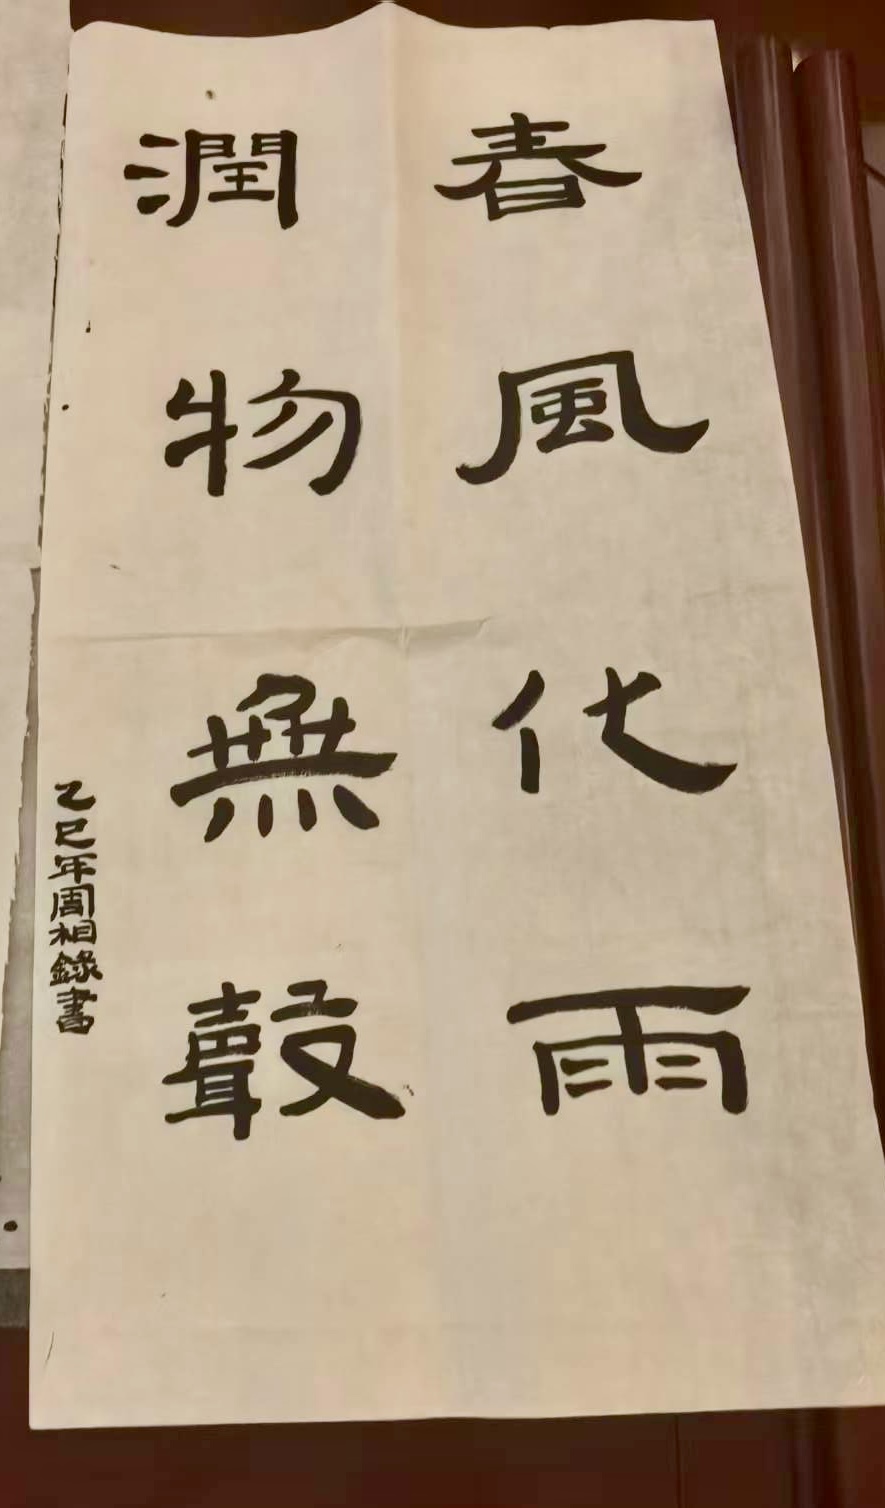 春風化雨
潤物無聲
乙巳年周相錄書